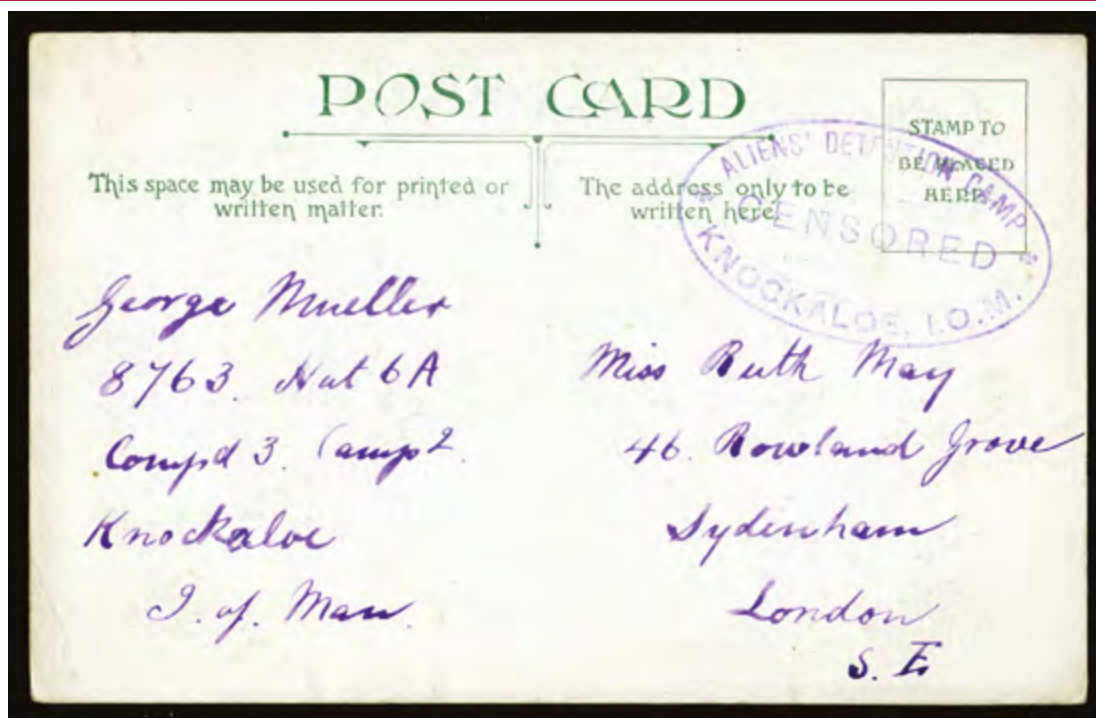 POST CARD
This space may be used for printed or
written matter.
The address only to be
written here.
STAMP TO
BE PLACED
HERE
ALIENS' DETENTION CAMP
CENSORED
KNOCKALOE, I.O.M.
George Mueller
8763. Hut 6A
Compd 3. Camp 2.
Knockaloe
I. of. Man.
Miss Ruth May
46. Rowland Grove
Sydenham
London
S. E.